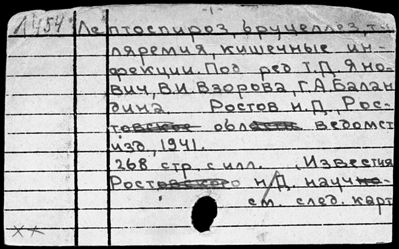 1454 Лептоспироз, бруцеллез, ту
ляремия, кишечные ин-
фекции. Под ред. Т.Д. Яно-
вич, В.И. Взорова, Г.А. Балан
дина. Ростов н.Д. Рос-
товское области ведомст
изд, 1941.
268 стр. с илл. (Известия
Ростовского н/Д. научно-
см. след. карт
××